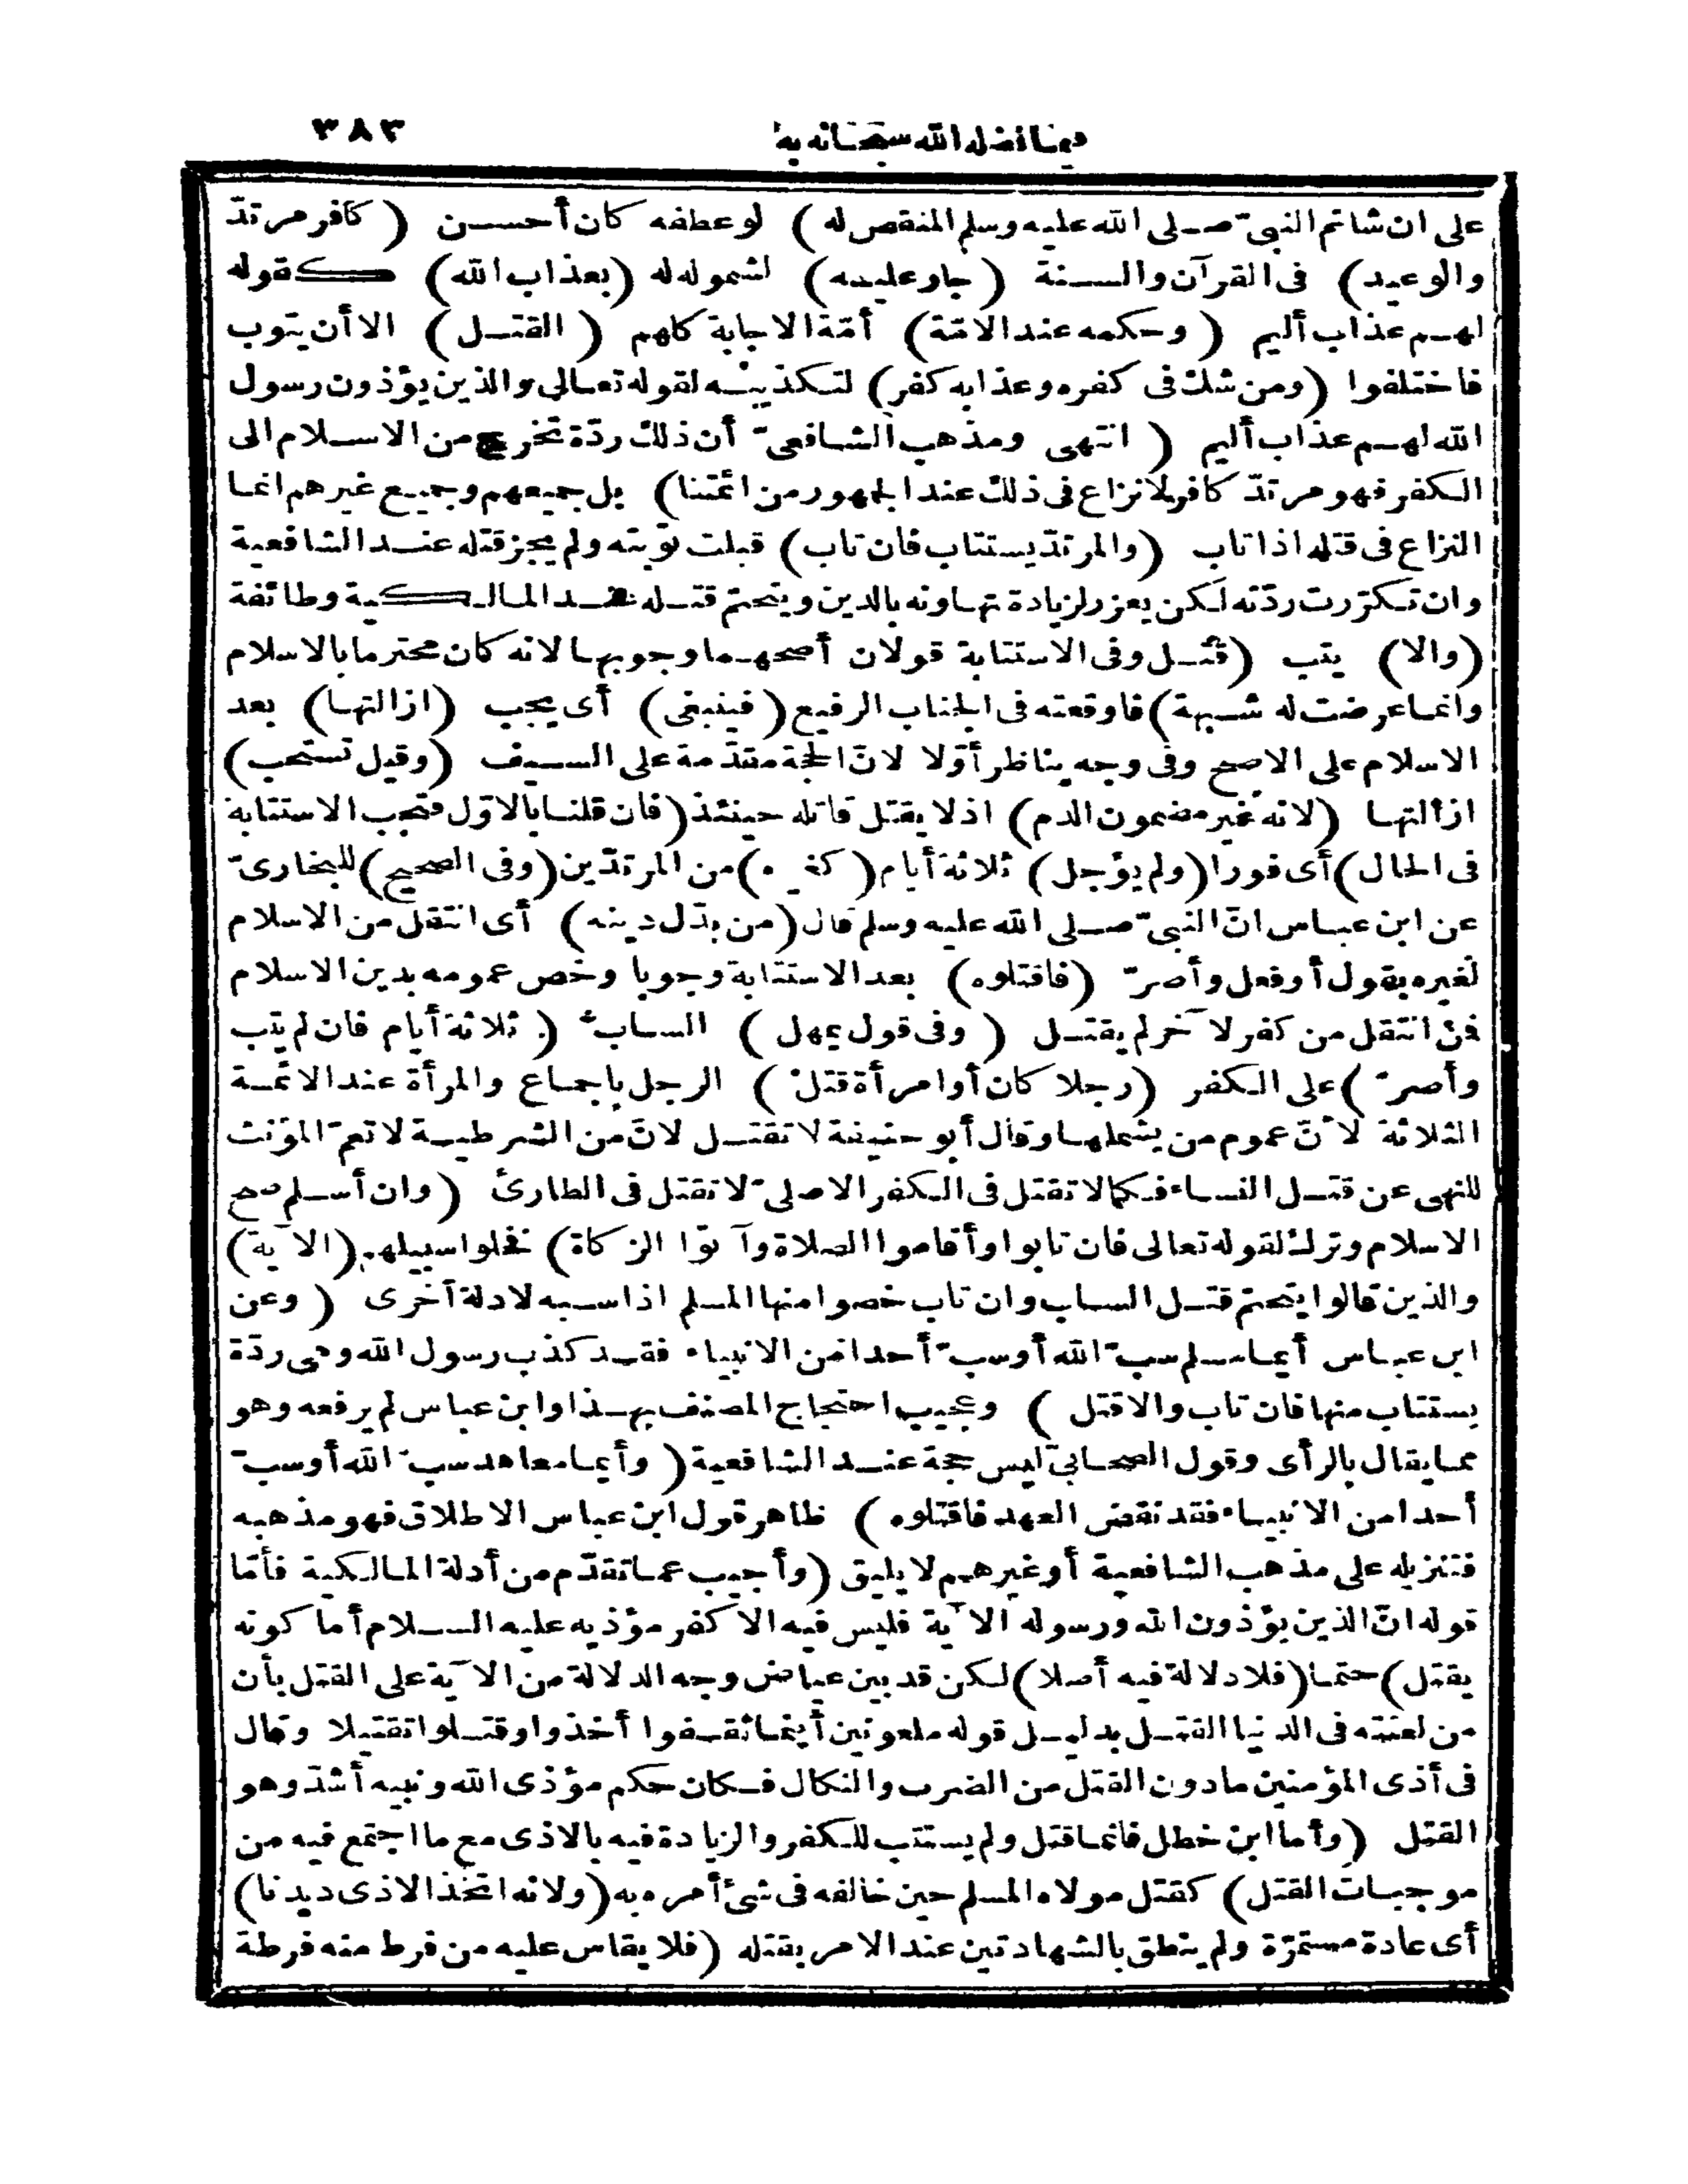 فيما فضله الله سبحانه به ٣٨٣
على ان شاتم النبىّ صلى الله عليه وسلم المنقص له) لو عطفه كان أحسن (كافر مرتدّ
والوعيد) فى القرآن والسنة (جار عليه) لشموله له (بعذاب الله) كقوله
لهم عذاب أليم (وحكمه عند الامّة) أمّة الاجابة كلهم (القتل) الا أن يتوب
فاختلفوا (ومن شك فى كفره وعذابه كفر) لتكذيبه لقوله تعالى والذين يؤذون رسول
الله لهم عذاب أليم (انتهى ومذهب الشافعىّ أن ذلك ردّة تخرج من الاسلام الى
الكفر فهو مرتدّ كافر لانزاع فى ذلك عند الجمهور من ائمّتنا) بل جميعهم وجميع غيرهم انما
النزاع فى قتله اذا تاب (والمرتدّ يستتاب فان تاب) قبلت توبته ولم يجز قتله عند الشافعية
وان تكرّرت ردّته لكن يعزر لزيادة تهاونه بالدين ويتحتم قتله عند المالكية وطائفة
(والا) يتب (قتل وفى الاستتابة قولان أصحهما وجوبها لانه كان محترما بالاسلام
وانما عرضت له شبهة) فاوقعته فى الجناب الرفيع (فينبغى) أى يجب (ازالتها) بعد
الاسلام على الاصح وفى وجه يناظر أوّلا لانّ الحجة مقدّمة على السيف (وقيل تستحب)
ازالتها (لانه غير مضمون الدم) اذ لا يقتل قاتله حينئذ (فان قلنا بالاوّل فتجب الاستتابة
فى الحال) أى فورا (ولم يؤجل) ثلاثة أيام (كغيره) من المرتدّين (وفى الصحيح) للبخارىّ
عن ابن عباس انّ النبىّ صلى الله عليه وسلم قال (من بدّل دينه) أى انتقل من الاسلام
لغيره بقول أو فعل وأصرّ (فاقتلوه) بعد الاستتابة وجوبا وخص عمومه بدين الاسلام
فمن انتقل من كفر لآخر لم يقتل (وفى قول يمهل) السابّ (ثلاثة أيام فان لم يتب
وأصرّ) على الكفر (رجلا كان أو امرأة قتل) الرجل باجماع والمرأة عند الائمة
الثلاثة لانّ عموم من يشملها وقال أبو حنيفة لا تقتل لانّ من الشرطية لا تعمّ المؤنث
للنهى عن قتل النساء فكما لا تقتل فى الكفر الاصلىّ لا تقتل فى الطارئ (وان أسلم صح
الاسلام وترك لقوله تعالى فان تابوا وأقاموا الصلاة وآتوا الزكاة) فخلوا سبيلهم (الآية)
والذين قالوا يتحتم قتل الساب وان تاب خصوا منها المسلم اذا سبه لادلة أخرى (وعن
ابن عباس أيما مسلم سبّ الله أو سبّ أحدا من الانبياء فقد كذب رسول الله وهى ردّة
يستتاب منها فان تاب والا قتل) وعجيب احتجاج المصنف بهذا وابن عباس لم يرفعه وهو
مما يقال بالرأى وقول الصحابىّ ليس حجة عند الشافعية (وأيما معاهد سبّ الله أو سبّ
أحدا من الانبياء فقد نقض العهد فاقتلوه) ظاهر قول ابن عباس الاطلاق فهو مذهبه
فتنزيله على مذهب الشافعية أو غيرهم لا يليق (وأجيب عما تقدّم من أدلة المالكية فأمّا
قوله انّ الذين يؤذون الله ورسوله الآية فليس فيه الا كفر مؤذيه عليه السلام أما كونه
يقتل) حتما (فلا دلالة فيه أصلا) لكن قد بين عياض وجه الدلالة من الآية على القتل بأن
من لعنته فى الدنيا القتل بدليل قوله ملعونين أينما ثقفوا أخذوا وقتلوا تقتيلا وقال
فى أذى المؤمنين ما دون القتل من الضرب والنكال فكان حكم مؤذى الله ونبيه أشدّ وهو
القتل (وأما ابن خطل فانما قتل ولم يستتب للكفر والزيادة فيه بالاذى مع ما اجتمع فيه من
موجبات القتل) كقتل مولاه المسلم حين خالفه فى شئ أمره به (ولانه اتخذ الاذى ديدنا)
أى عادة مستمرّة ولم ينطق بالشهادتين عند الامر بقتله (فلا يقاس عليه من فرط منه فرطة